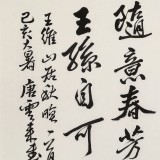 隨意春芳
王孫自可
王維山居秋暝一首
己亥大暑唐雲來書